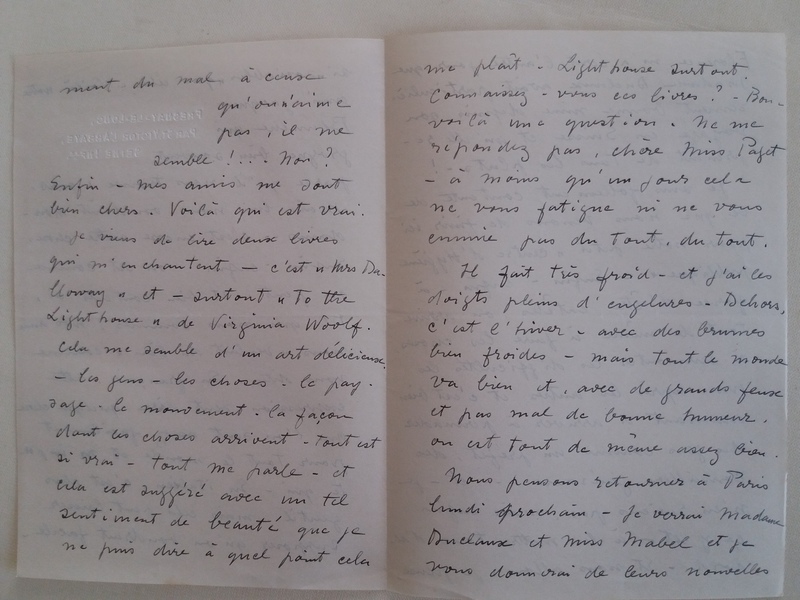 ment du mal à cause
qu'on n'aime
pas, il me
semble !... Non ?
Enfin - mes amis me sont
bien chers. Voilà qui est vrai.
Je viens de lire deux livres
qui m'enchantent - c'est "Mrs Da-
lloway" et - surtout "To the
Lighthouse" de Virginia Woolf.
Cela me semble d'un art délicieux.
- les gens - les choses - le pay-
sage - le mouvement - la façon
dont les choses arrivent - tout est
si vrai - tout me parle - et
cela est suggéré avec un tel
sentiment de beauté que je
ne puis dire à quel point cela
me plaît - Lighthouse surtout.
Connaissez-vous ces livres ? - Bon -
voilà une question. Ne me
répondez pas, chère Miss Paget
- à moins qu'un jour cela
ne vous fatigue ni ne vous
ennuie pas du tout, du tout.
Il fait très froid - et j'ai les
doigts pleins d'engelures - Dehors,
c'est l'hiver - avec des brumes
bien froides - mais tout le monde
va bien et, avec de grands feux
et pas mal de bonne humeur,
on est tout de même assez bien.
Nous pensons retourner à Paris
lundi prochain - Je verrai Madame
Duclaux et Miss Mabel et je
vous donnerai de leurs nouvelles